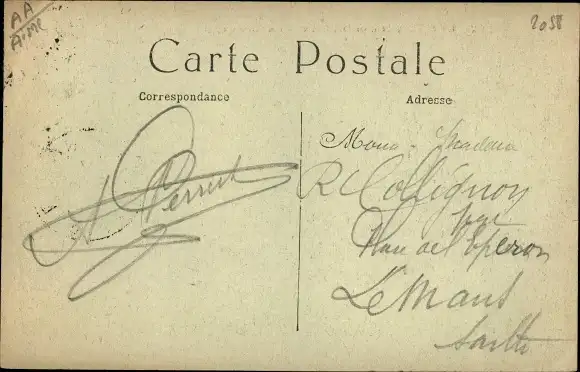 AA
2058
Carte Postale
Correspondance
Adresse
A Perrut
Mons. Madame
R Collignon
Place de l'Eperon
Le Mans
Sarthe